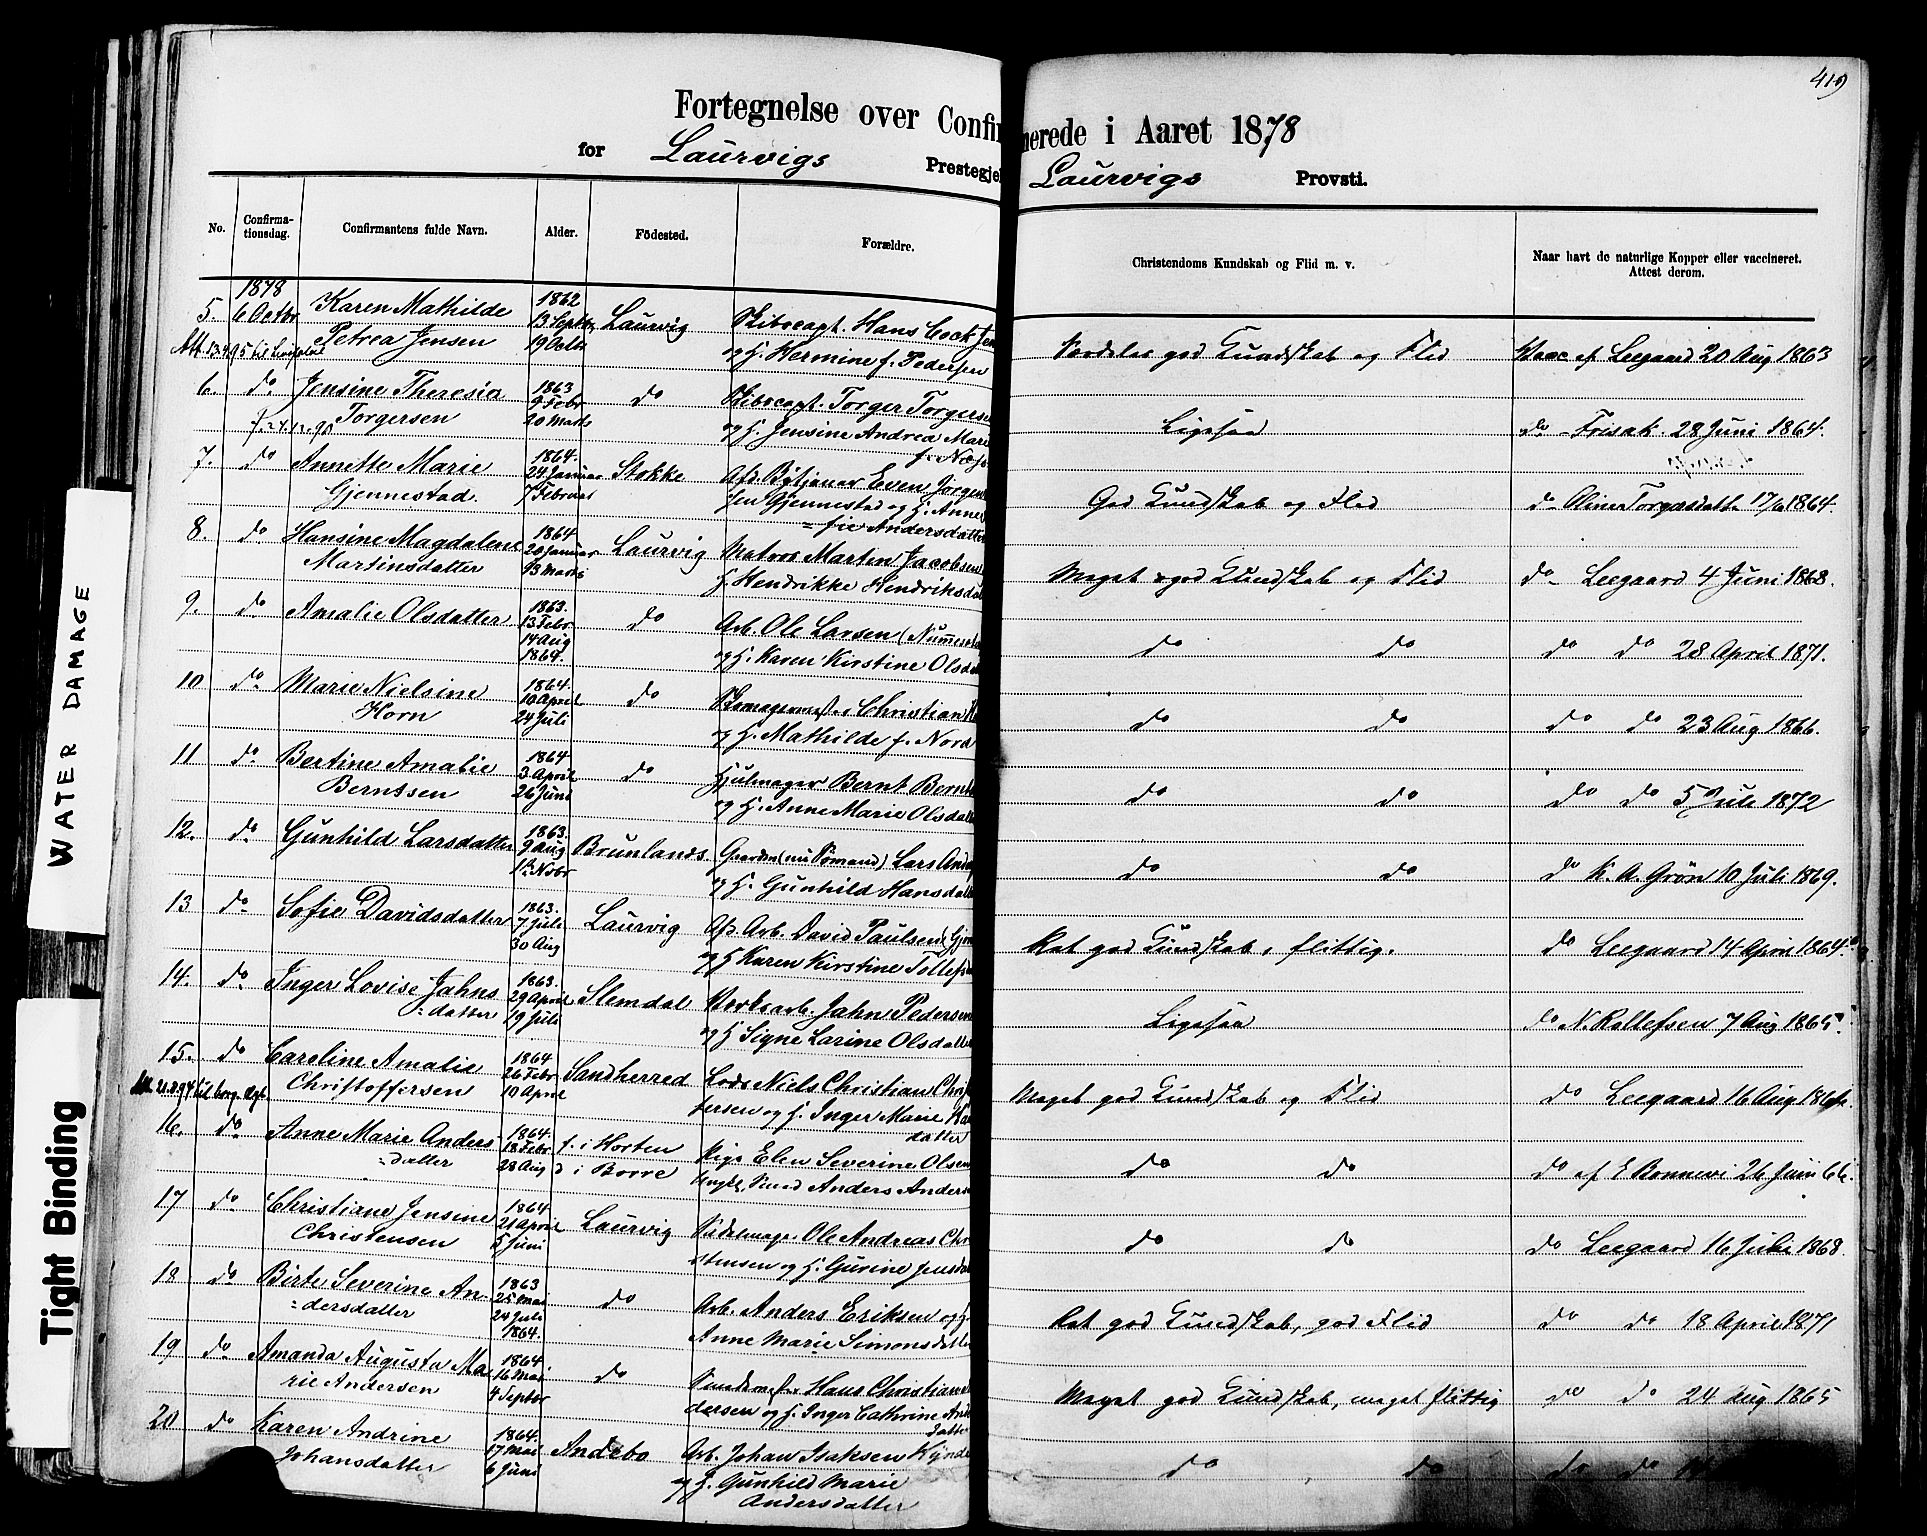 419
Fortegnelse over Confir
merede i Aaret 1878
for Laurvigs Prestegjel
Laurvigs Provsti.
No. Confirma-tionsdag. Confirmantens fulde Navn. Alder. Födested. Forældre.
Christendoms Kundskab og Flid m. v.
Naar havt de naturlige Kopper eller vaccineret.
Attest derom.
1878
5. 6 Octbr Karen Mathilde 1862 13 Septbr Laurvig Skibscapt. Hans Cock Jen
Petrea Jensen 19 Octbr og H. Hermine f. Pedersen
Særdeles god Kundskab og Flid Vacc af Leegaard 20 Aug 1863
6. do Jensine Theresia 1863 9 Febr do Skibscapt. Torger Torgersen
Torgersen 20 Marts og H. Jensine Andrea Marie
Ligesaa do Frisak. 28 Juni 1864.
7. do Annette Marie 1864. 24 Januar Stokke Afd. Bÿtjener Even Jörgen
Gjennestad. 7 Februar sen Gjennestad og H. Anne
fie Andersdatter
God Kundskab og Flid do Oline Torgersdatter 17/6 1864.
8. do Hansine Magdalene 1864 20 Januar Laurvig Matros Marten Jacobsen
Martinsdatter 13 Marts H. Hendrikke Hendriksdat
Meget god Kundskab og Flid do Leegaard 4 Juni 1868.
9. do Amalie Olsdatter 1863. 13 Febr do Arb. Ole Larsen
14 Aug 1864. og H. Karen Kirstine Olsda
do do do do 28 April 1871.
10 do Marie Nielsine 1864. 10 April do Skomagermester Christian
Horn 24 Juli og H. Mathilde f. Nord
do do do do 23 Aug 1866.
11 do Bertine Amalie 1864 3 April do Hjulmager Bernt Bernt
Berntsen 26 Juni og H. Anne Marie Olsdat
do do do do 5 Juli 1872
12. do Gunhild Larsdatter 1863. 9 Aug Brunlands Gaardm (nu Sömand) Lars And
1 Novbr og H. Gunhild Hansdat
do do do K. A. Grön 10 Juli 1869.
13 do Sofie Davidsdatter 1863. 7 Juli Laurvig Afd. Arb. David Paulsen
30 Aug og H Karen Kirstine Tollefs
Ret god Kundskab, flittig. do Leegaard 14 April 1864
14. do Inger Lovise Jahns 1863. 29 April Slemdal Værksarb. Jahn Pedersen
datter 19 Juli og H Signe Larine Olsdatter
Ligesaa do N. Rollefsen 7 Aug 1865
15. do Caroline Amalie 1864 26 Febr Sandherred Lods Niels Christian Chris
Christoffersen 10 April fersen og H. Inger Marie
datter
Meget god Kundskab og Flid do Leegaard 16 Aug 1864.
16. do Anne Marie Anders 1864. 18 Febr f. i Horten Pige Elen Severine Olsen
datter 28 Aug d i Borre Ungk. Smed Anders Anders
do do do af E Bonnevi 26 Juni 66.
17 do Christiane Jensine 1864 21 April Laurvig Sadelmager Ole Andreas Chr
Christensen 5 Juni stensen og H. Gurine Jensda
do do do Leegaard 16 Juli 1868.
18 do Birte Severine An- 1863 25 Mai do Arb. Anders Eriksen og H.
dersdatter 24 Juli 1864. Anne Marie Simonsdatter
Ret god Kundskab, god Flid do do 18 April 1871
19 do Amanda Augusta Ma 1864 16 Mai do Hans Christian
rie Andersen 4 Septbr dersen og H. Inger Cathrine And
datter
Meget god Kundskab, meget flittig do do 24 Aug 1865
20 do Karen Andrine 1864. 17 Mai Andebo Arb. Johan Isaksen
Johansdatter 6 Juni og H. Gunhild Marie
Andersdatter
do do do do
WATER DAMAGE
Tight Binding